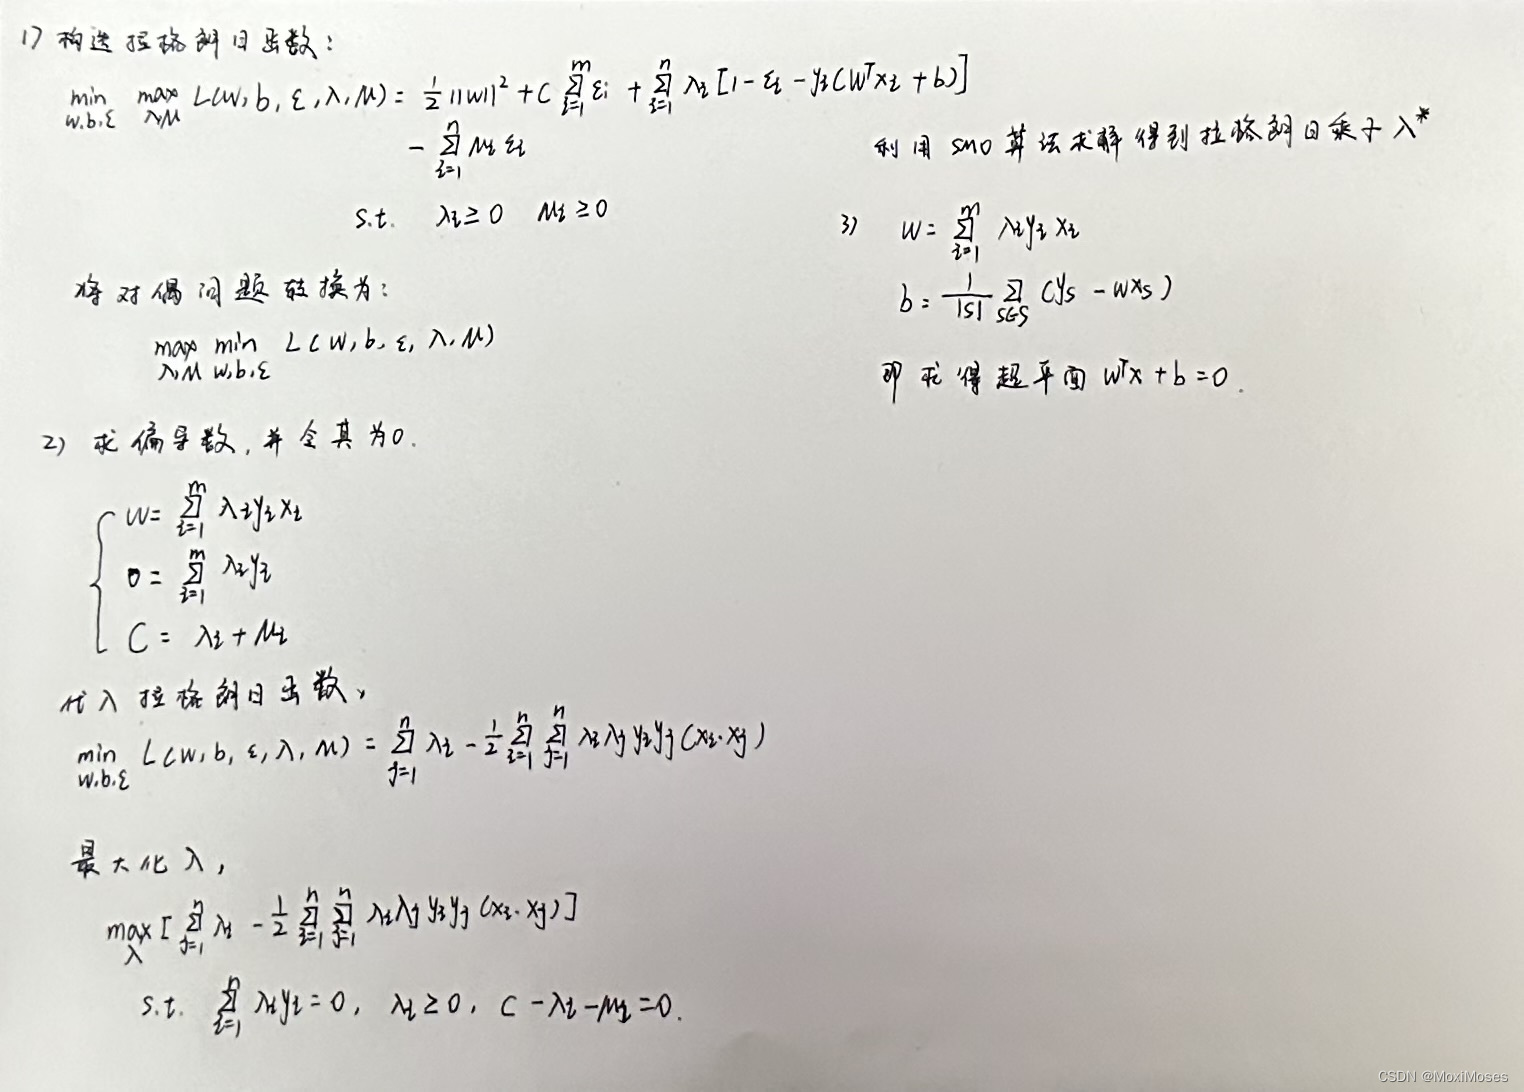 1) 构造拉格朗日函数:
min w,b,ε max λ,μ L(w,b,ε,λ,μ) = 1/2 ||w||² + C Σ_{i=1}^{m} εi + Σ_{i=1}^{n} λi [1 - εi - yi(wᵀxi + b)]
- Σ_{i=1}^{n} μi εi
s.t. λi ≥ 0 μi ≥ 0
将对偶问题转换为:
max λ,μ min w,b,ε L(w,b,ε,λ,μ)
2) 求偏导数,并令其为0.
w = Σ_{i=1}^{m} λi yi xi
0 = Σ_{i=1}^{m} λi yi
C = λi + μi
代入拉格朗日函数,
min w,b,ε L(w,b,ε,λ,μ) = Σ_{j=1}^{n} λi - 1/2 Σ_{i=1}^{n} Σ_{j=1}^{n} λi λj yi yj (xi·xj)
最大化λ,
max λ [Σ_{j=1}^{n} λi - 1/2 Σ_{i=1}^{n} Σ_{j=1}^{n} λi λj yi yj (xi·xj)]
s.t. Σ_{i=1}^{n} λi yi = 0, λi ≥ 0, C - λi - μi = 0.
利用SMO算法求解得到拉格朗日乘子λ*
3) w = Σ_{i=1}^{m} λi yi xi
b = 1/|S| Σ_{s∈S} (ys - wxs)
即求得超平面 wᵀx + b = 0.
CSDN @MoxiMoses